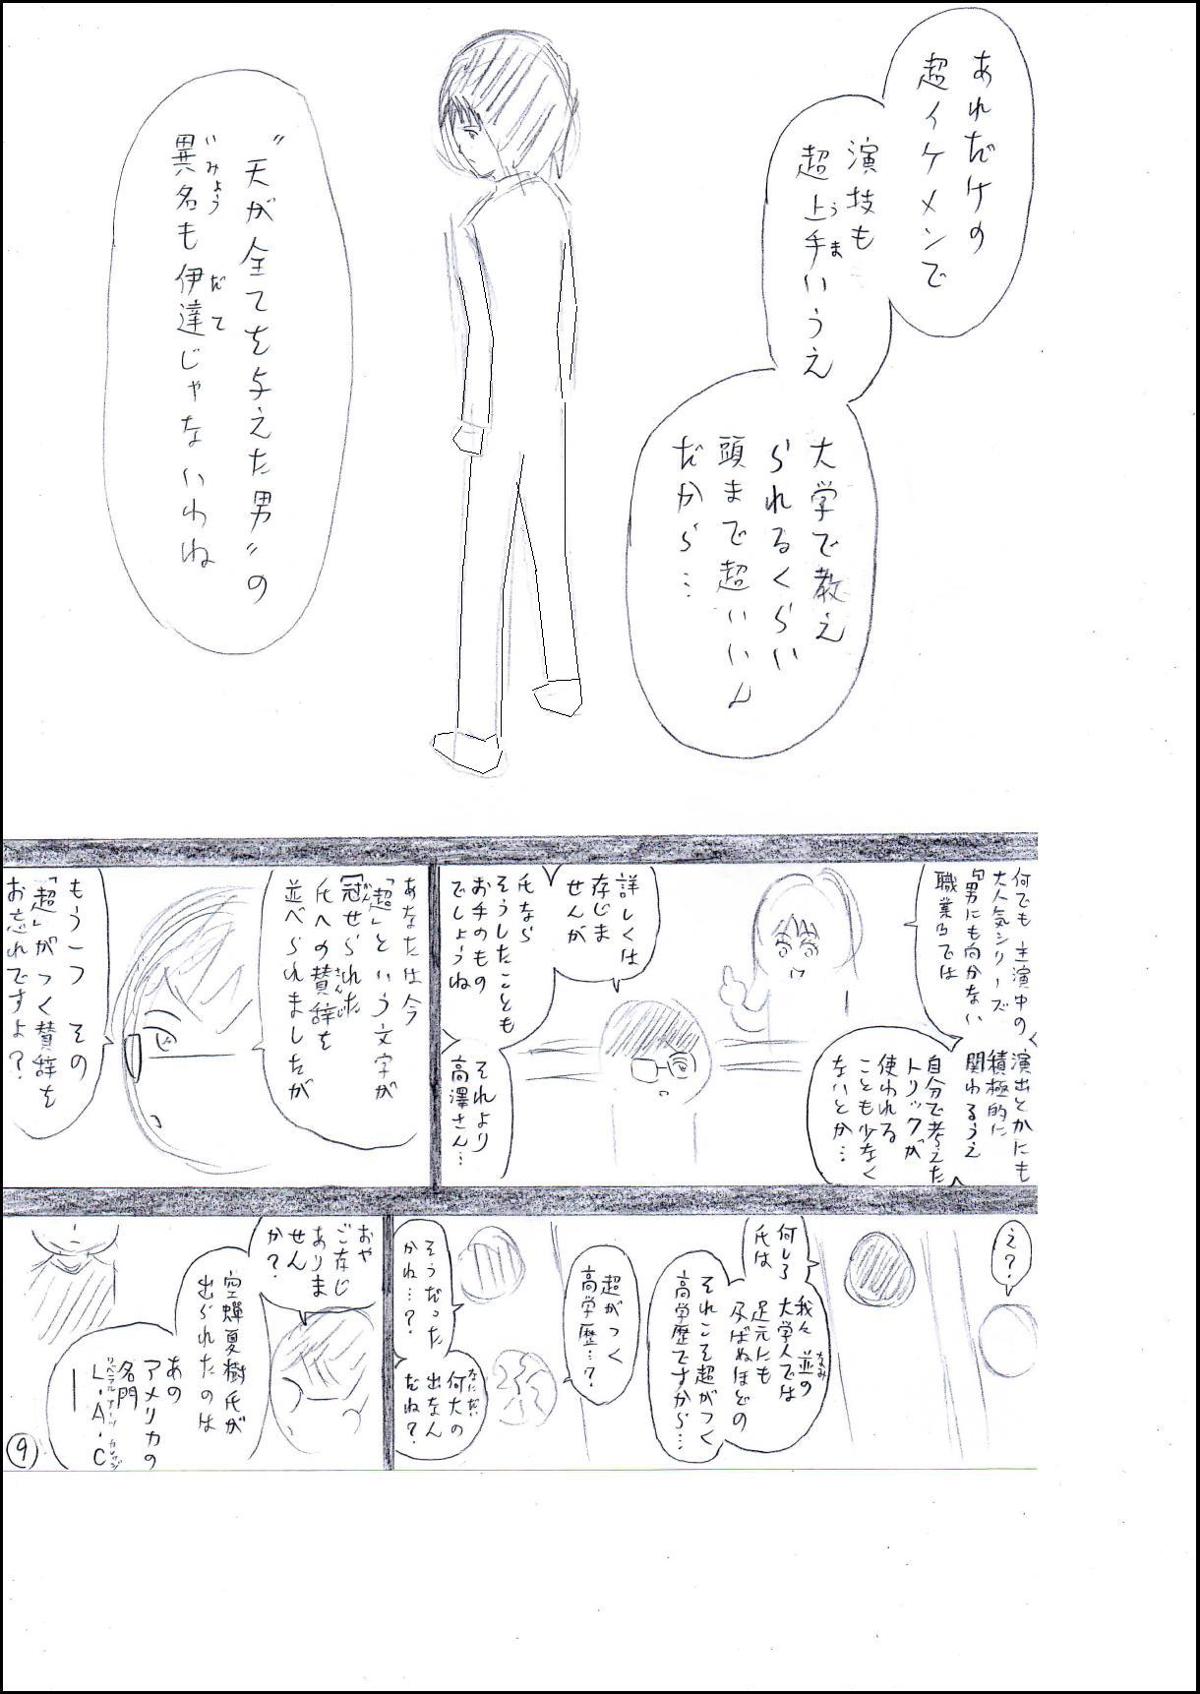 あれだケの
超イケメンで
演技も
超上手いうえ
うま
大学で教え
られるくらい
頭まで超いいん
だから…
“天が全てを与えた男”の
異名も伊達じゃないわね
いみょう
だて
何でも主演中の
大人気シリーズ
『男にも向かない
職業』では
演出とかにも
積極的に
関わるうえ
自分で考えた
トリックが
使われる
ことも少なく
ないとか…
詳しくは
存じま
せんが
氏なら
そうしたことも
お手のもの
でしょうね
それより
高澤さん…
あなたは今
「超」という文字が
冠せられた
かん
氏への賛辞を
さんじ
並べられましたが
もう一つ その
「超」がつく賛辞を
お忘れですよ?
え?
何しろ我々並の
なみ
氏は大学人では
足元にも
及ばぬほどの
それこそ超がつく
高学歴ですから…
超がつく
高学歴…?
そうだった
かね…?
何大の
なにだい
出なん
だね?
おや
ご存じ
ありま
せん
か?
空蝉夏樹氏が
出られたのは
あの
アメリカの
名門
L・A・C
リベラルアーツ カレッジ
ー
9